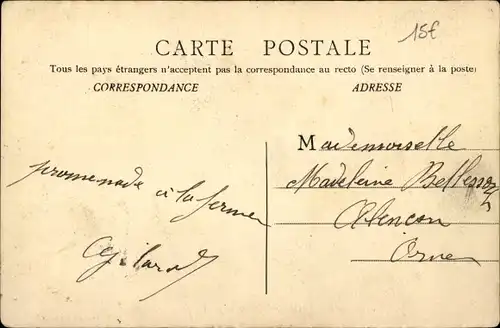 15€
CARTE POSTALE
Tous les pays étrangers n'acceptent pas la correspondance au recto (Se renseigner à la poste
CORRESPONDANCE
ADRESSE
Mademoiselle
Madeleine
Alençon
Orne
promenade
à la ferme